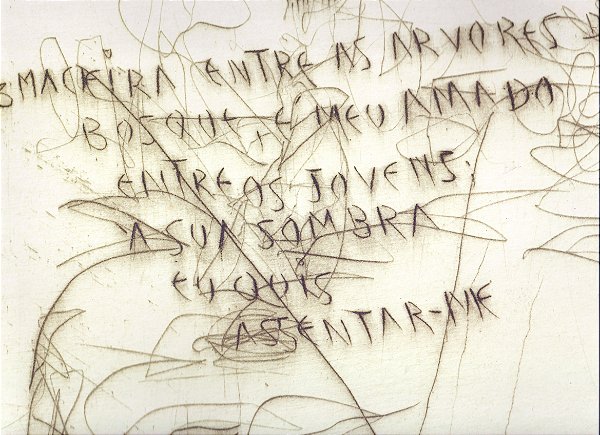 MACEIRA ENTRE AS ARVORES D
BOSQUE, É MEU AMADO
ENTRE OS JOVENS;
A SUA SOMBRA
EU QUIS
ASSENTAR-ME